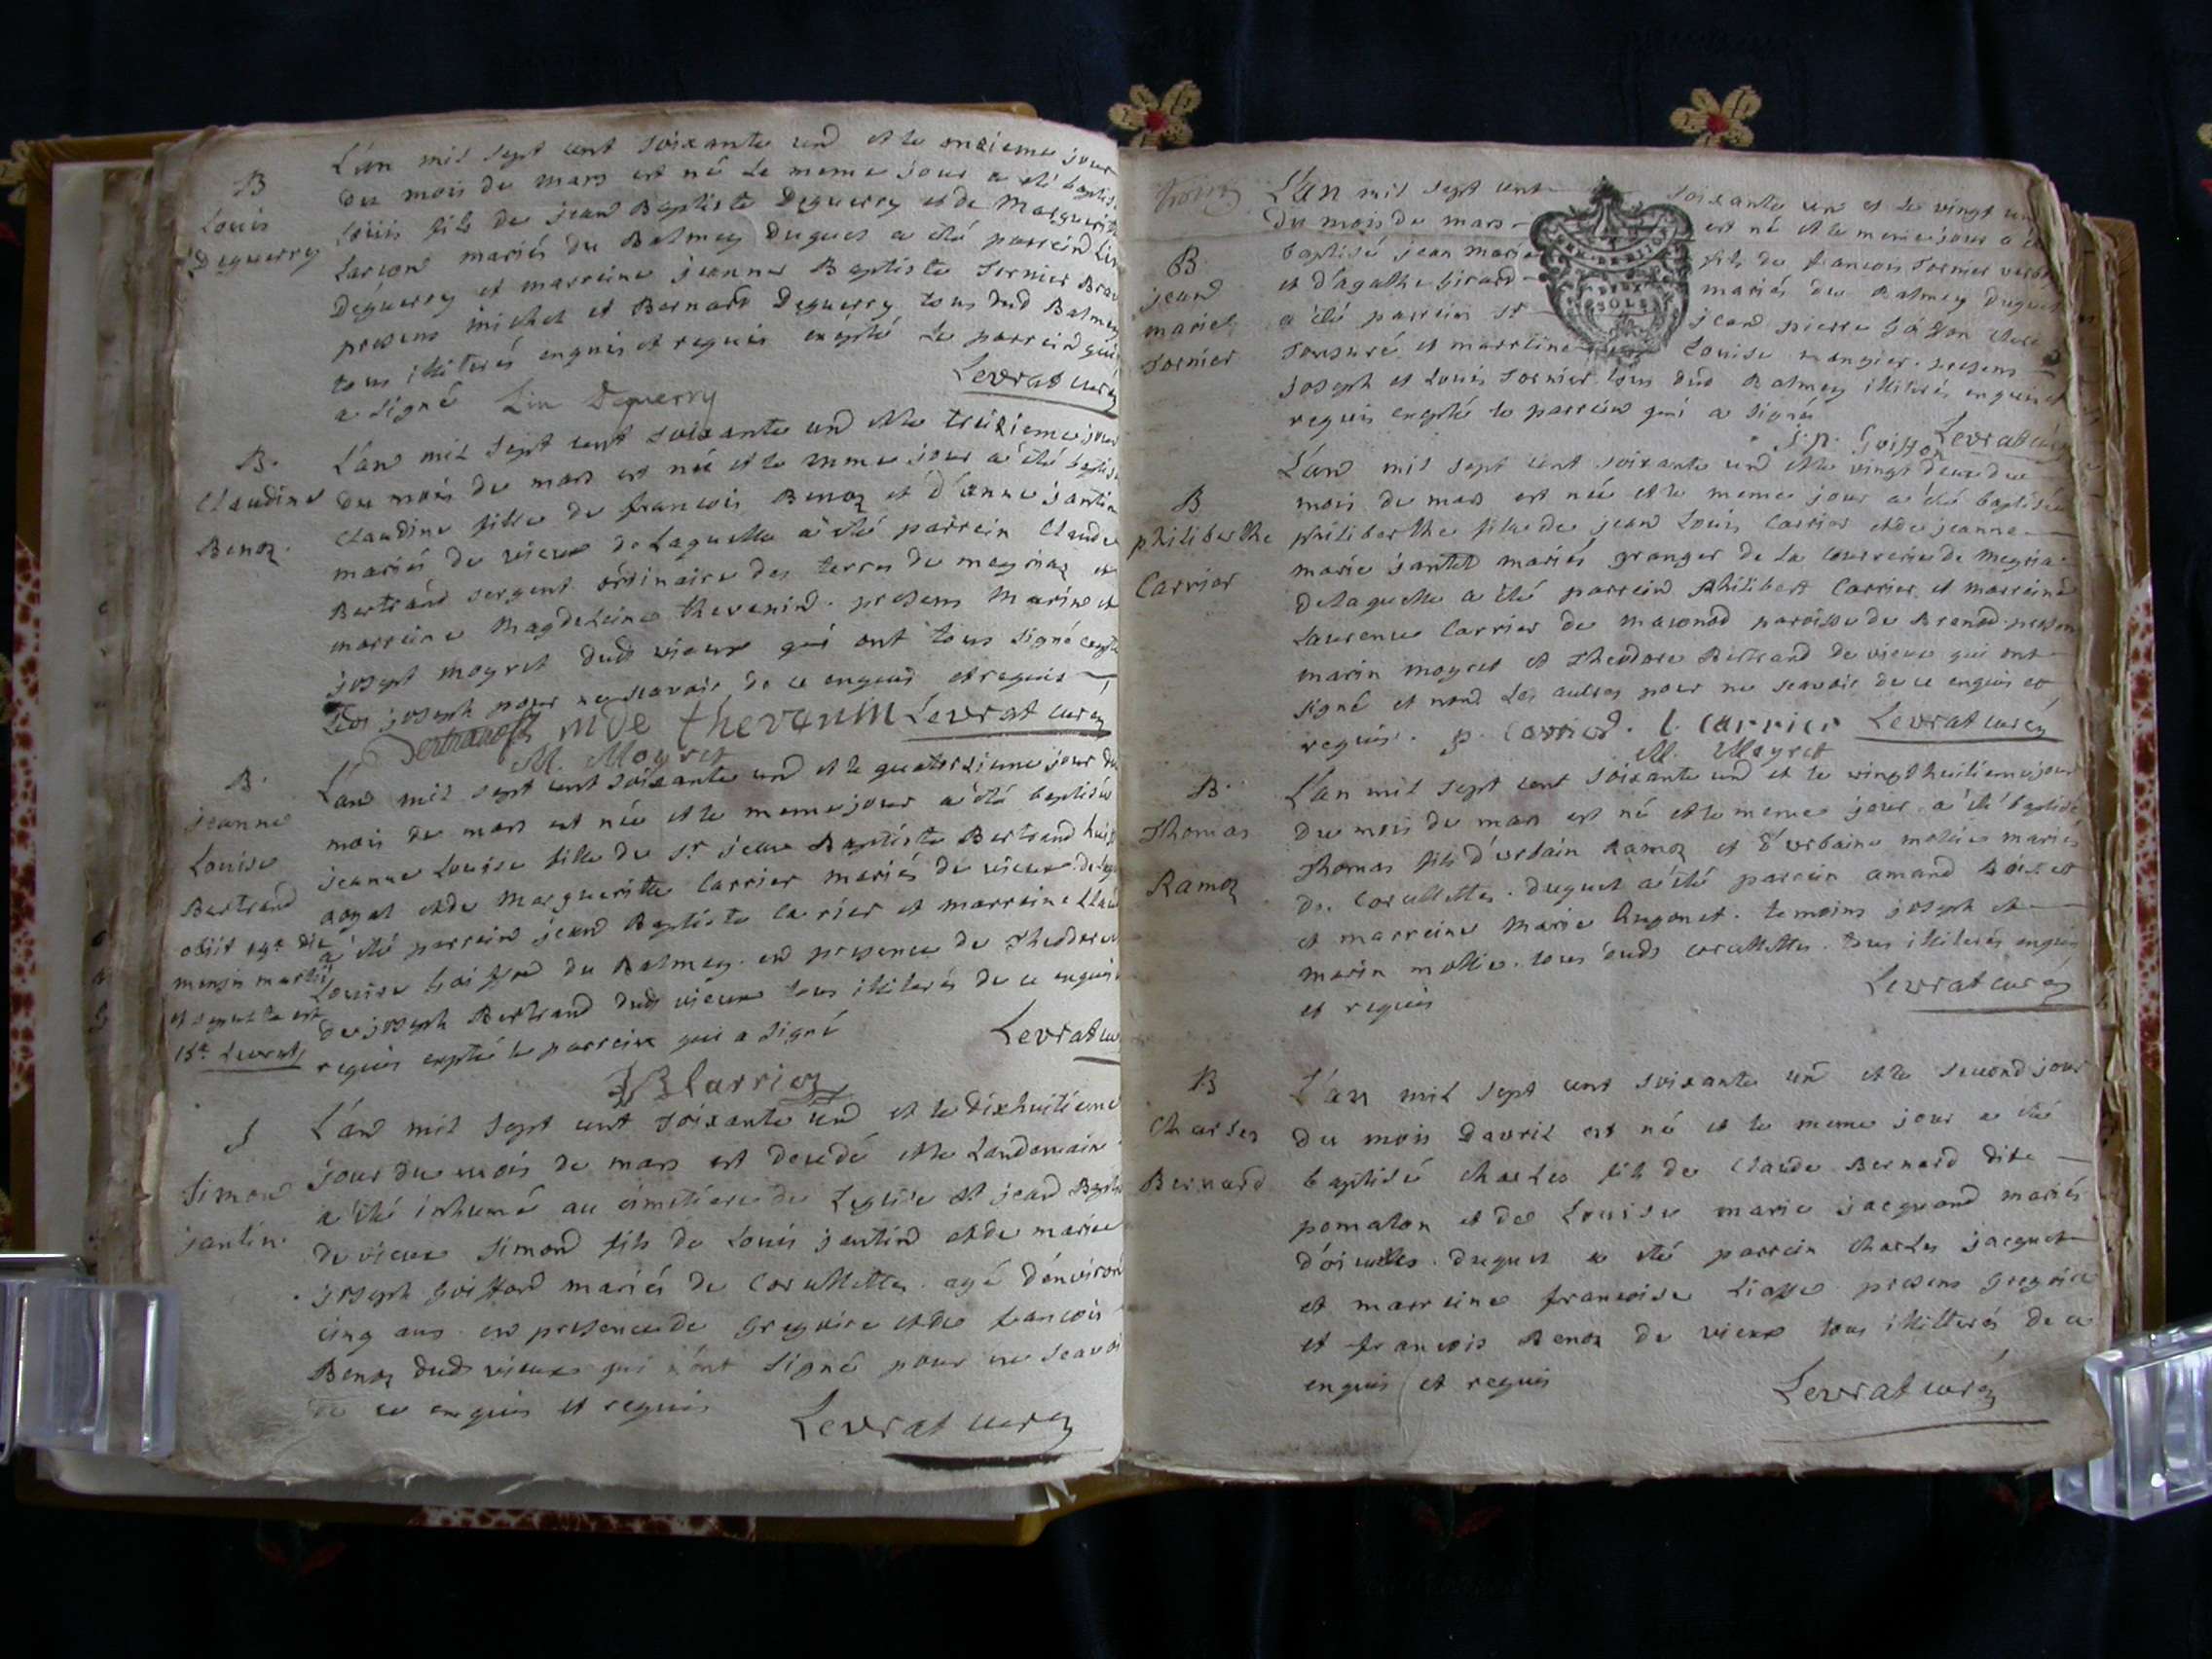 B
Louis
Deguerry
L'an mil sept cent soixante und et le onzieme jour
du mois de mars est né Le meme jour a été baptisé
Loüis fils de jean Baptiste Deguerry et de Marguerite
mariés du Balmey duquel a été parrein Lin
Deguerry et marreine jeanne Baptiste Sornier
presens michel et Bernard Deguerry tous dud Balmey
tous illiterés enquis et requis excepté Le parrein qui
a signé Lin Deguerry Levrat curé
B.
Claudine
Benoz.
L'and mil sept cent soixante und et le treizieme jour
du mois de mars est née et le meme jour a été baptisé
Claudine fille de francois Benoz et d'anne jantin
mariés de vieux de Laquelle a été parrein Claude
Bertrand sergent ordinaire des terres de meyriaz et
marreine Magdeleine thevenind. presens Marin et
joseph moyret dud vieux qui ont tous signé excepté
led joseph pour ne scavoir de ce enquis et requis
Bertrand mde thevenin Levrat curé
M. Moyret
B.
jeanne
Louise
Bertrand
obiit 14a die
mensis martii
et sepulta est
15a Levrat
L'and mil sept cent soixante und et le quatorzieme jour du
mois de mars est née et le meme jour a été baptisée
jeanne Louyse fille de sr jean Baptiste Bertrand
royal et de Marguerite Carrier mariés de vieux
a été parreind jeand Baptiste carier et marreine
Louise Goiffond du Balmey. en presence de Theodore et
de joseph Bertrand dud vieux tous illiterés de ce enquis
requis excepté le parrein qui a signé Levrat
JB Carrier
S
Simond
jantin.
L'and mil sept cent soixante und et le dixhuitieme
jour du mois de mars est decedé et le Landemain
a été inhumé au cimetiere de Leglise st jeand Baptiste
de vieux Simond fils de Loüis jantind et de marie
joseph Goiffond mariés de Corcellette. agé d'environ
cinq ans. en presence de Gregoire et de francois
Benoz dud vieux qui n'ont signé pour ne scavoir
de ce enquis et requis
Levrat curé
B.
jeand
marie
Sornier
L'an mil sept cent soixante un et le vingt un
du mois de mars est né et le meme jour a été
baptisé jean marie fils de francois Sornier
et d'agathe girard mariés du Balmey duquel
a été parrein sr jeand pierre Goiffon clerc
tonsuré et marreine Louise presens
joseph et Louis Sornier tous dud Balmey illiterés enquis et
requis excepté le parrein qui a signé
j. p. Goiffon Levrat curé
B
philiberthe
Carrier
L'and mil sept cent soixante und et le vingt deux du
mois de mars est née et le meme jour a été baptisée
philiberthe fille de jeand Louis Carrier et de jeanne
marie jantet mariés granger de La Courrerie de meyria
de laquelle a été parreind Philibert Carrier et marreine
Laurence Carrier de maconod paroisse de Brenod presens
marin moyret et Theodore Bertrand de vieux qui ont
signé et nond Les autres pour ne scavoir de ce enquis et
requis. p. Carrier. l. carrier Levrat curé
M. Moyret
B.
Thomas
Ramoz
L'an mil sept cent soixante und et le vingt huitieme jour
du mois de mars est né et le meme jour a été baptisé
Thomas fils d'urbain Ramoz et d'urbaine mollie mariés
de Corcellette. duquel a été parrein amand
et marreine Marie hugonet. temoins joseph et
marin mollie. tous dud corcellette. tous illiterés enquis
et requis Levrat curé
B
Charles
Bernard
L'an mil sept cent soixante un et le second jour
du mois davril est né et le meme jour a été
baptisé charles fils de Claude Bernard dite
pomaton et de Louise marie jacquand mariés
duquel a été parrein charles jacquet
et marreine francoise presens gregoire
et francois Benoz de vieux tous illitterés de ce
enquis et requis Levrat curé